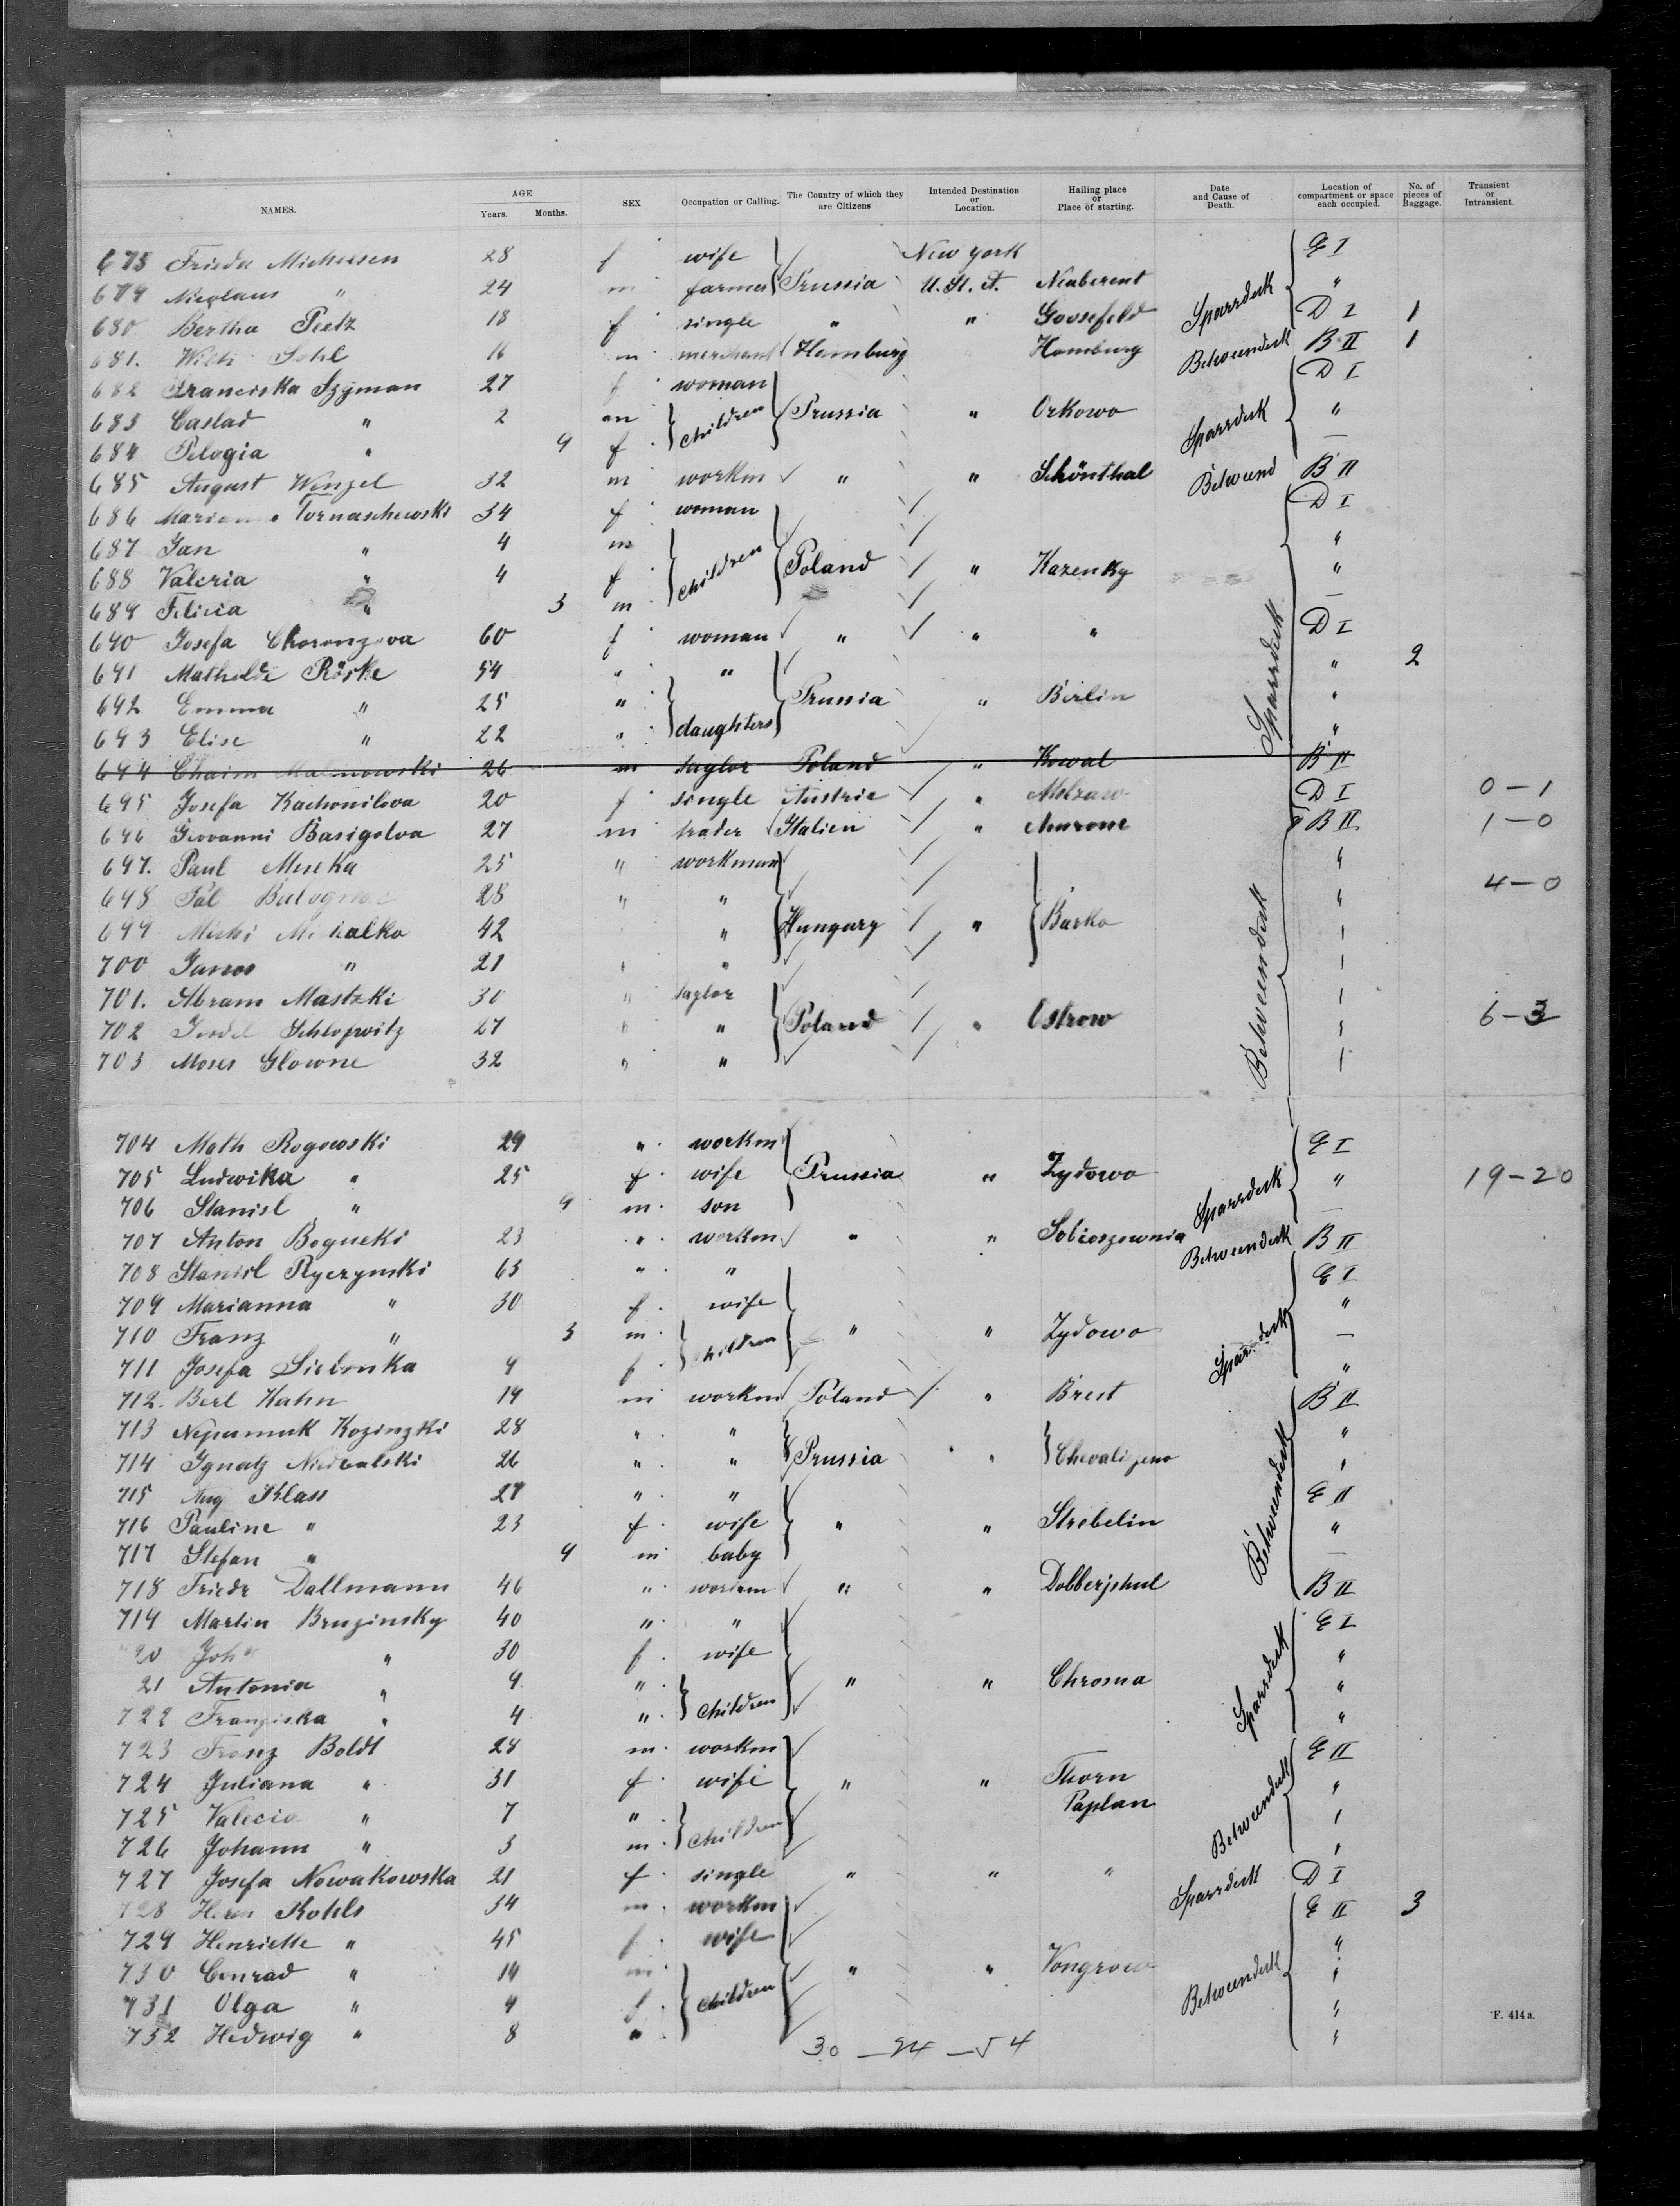 NAMES. AGE Years. Months. SEX Occupation or Calling. The Country of which they are Citizens Intended Destination or Location. Hailing place or Place of starting. Date and Cause of Death. Location of compartment or space each occupied. No. of pieces of Baggage. Transient or Intransient.
678 Frieda 28 f wife New York E I
679 Nicolaus " 24 m farmer Prussia U. St. A. Neuberent "
680 Bertha Peetz 18 f single " " Goosefeld Sparrdeck D I 1
681. Willi Sohl 16 m merchant Hamburg Hamburg Betweendeck B II 1
682 Franciska Szyman 27 f woman D I
683 Caslad " 2 m children Prussia " Orkowo Sparrdeck "
684 Pelogia " 9 f —
685 August Wenzel 32 m workm " " Schönthal Betweend B II
686 Marianna Tornaschewski 34 f woman D I
687 Jan " 4 m "
688 Valeria " 4 f children Poland " Kazenky "
689 Felicia " 3 m —
690 Josefa 60 f woman " " " D I
691 Mathilde Röske 54 " " " 2
692 Emma " 25 " Prussia " Berlin Sparrdeck "
693 Elise " 22 " daughters "
694 Chaim Malinowski 26 m taylor Poland " Kowal B II
695 Josefa Kachonilova 20 f single Austria " D I 0-1
696 Giovanni Basigolva 27 m trader Italien " B II 1-0
697. Paul 25 " workman "
698 Pál 28 " " " 4-0
699 Mihalko 42 " Hungary " Barko
700 Janos " 21 " "
701. Abram Mastzki 30 " taylor
702 27 " Poland " Ostrow Betweendeck 6-3
703 Moses Glowne 32 " "
704 Math Rogowski 29 " workm E I
705 Ludwika " 25 f wife Prussia " Zydowo Sparrdeck " 19-20
706 Stanisl " 9 m son —
707 Anton 23 " workm " " Sobieszownia Betweendeck B II
708 Stanisl Ryczynski 63 " " E I
709 Marianna " 30 f wife "
710 Franz " 3 m children " " Zydowo Sparrdeck —
711 Josefa 9 f "
712. Berl Kahn 19 m workm Poland " Brest B II
713 Nepumuk Kozinzki 28 " " "
714 Ignatz Niedbalski 26 " " Prussia " "
715 Aug Klass 27 " " E II
716 Pauline " 23 f wife " " Strebelin Betweendeck "
717 Stefan " 9 m baby —
718 Friedr Dallmann 46 " workm " " Dobberphul B II
719 Martin Bruzinsky 40 " " E I
20 Joh " 30 f wife "
21 Antonia " 9 " " " Chrosna Sparrdeck "
722 Franziska " 4 " children "
723 Franz Boldt 28 m workm E II
724 Juliana " 31 f wife " " Thorn "
725 Valecia " 7 " Paplan Betweendeck
726 Johann " 3 m children
727 Josefa Nowakowska 21 f single " " " Sparrdeck D I
728 Herm Kohls 34 m workm E II 3
729 Henriette " 45 f wife "
730 Conrad " 14 m " " Vongrow Betweendeck "
731 Olga " 9 f children "
732 Hedwig " 8 " "
30 — 24 — 54
F. 414a.